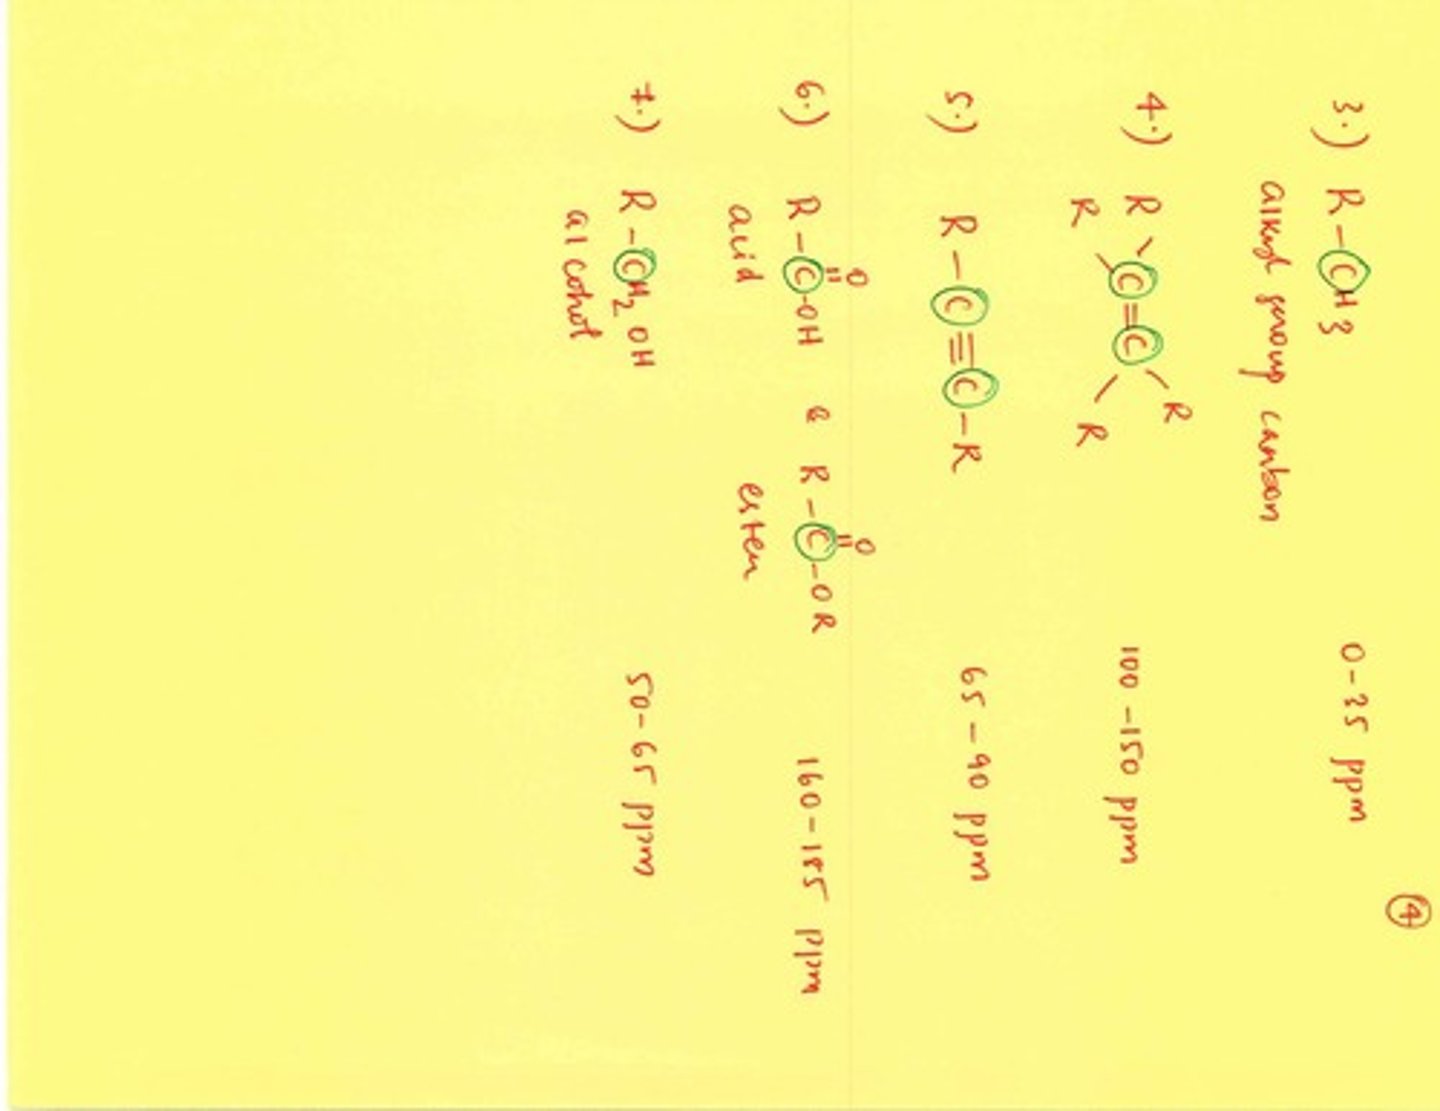 ④
3.) R-CH3 0-35 ppm
alkyl group carbon
4.) R R C=C R R 100-150 ppm
5.) R-C≡C-R 65-90 ppm
O O
6.) R-C-OH & R-C-OR 160-185 ppm
acid ester
7.) R-CH₂OH 50-65 ppm
alcohol